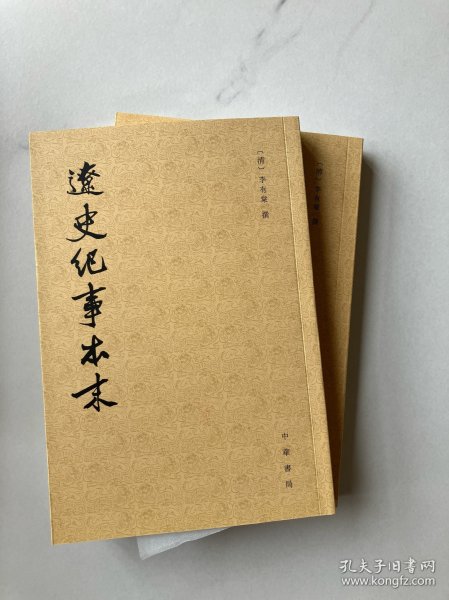 遼史紀事本末
〔清〕李有棠 撰
中華書局
〔清〕李有棠 撰
孔夫子旧书网
www.kongfz.com